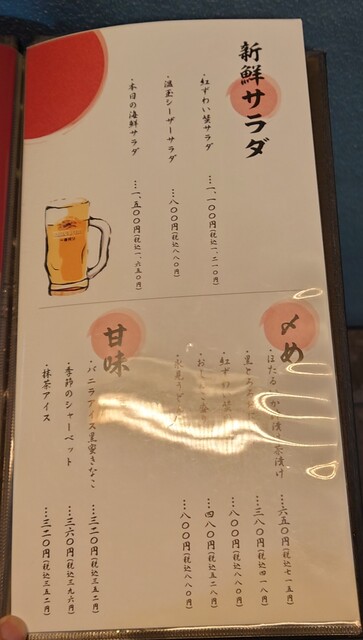 新鮮サラダ
・紅ずわい蟹サラダ …一、一〇〇円(税込一、二一〇円)
・温玉シーザーサラダ …八〇〇円(税込八八〇円)
・本日の海鮮サラダ …一、五〇〇円(税込一、六五〇円)
〆め
・ほたるいか 漬 茶漬け …六五〇円(税込七一五円)
・黒とろろ …三八〇円(税込四一八円)
・紅ずわい蟹 …八〇〇円(税込八八〇円)
・お …四八〇円(税込五二八円)
…八〇〇円(税込八八〇円)
甘味
・バニラアイス黒蜜きなこ …三二〇円(税込三五二円)
・季節のシャーベット …三六〇円(税込三九六円)
・抹茶アイス …三二〇円(税込三五二円)